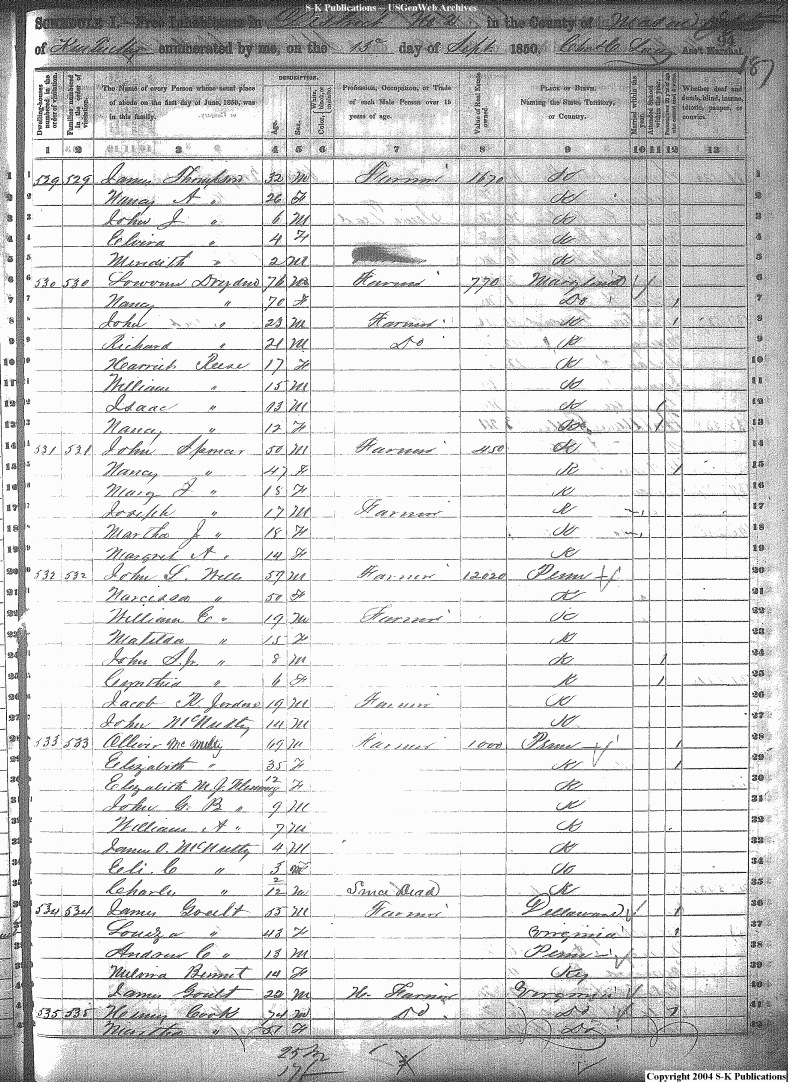 S-K Publications -- USGenWeb Archives
SCHEDULE I.—Free Inhabitants in District No. 2 in the County of
of Kentucky enumerated by me, on the 15th day of Sept. 1850. Ass't Marshal
187
Dwelling-houses numbered in the order of visitation.
Families numbered in the order of visitation.
The Name of every Person whose usual place of abode on the first day of June, 1850, was in this family.
DESCRIPTION.
Age.
Sex.
Color, White, black, or mulatto.
Profession, Occupation, or Trade of each Male Person over 15 years of age.
Value of Real Estate owned.
PLACE OF BIRTH. Naming the State, Territory, or Country.
Married within the year.
Attended School within the year.
Persons over 20 y'rs of age who cannot read & write.
Whether deaf and dumb, blind, insane, idiotic, pauper, or convict.
1 2 3 4 5 6 7 8 9 10 11 12 13
1 529 529 James Thompson 32 M Farmer 1670 K 1
2 Nancy A " 26 F K 2
3 John J " 6 M K 3
4 Elvira " 4 F K 4
5 Meridith " 2 M K 5
6 530 530 Dryden 76 M Farmer 770 Maryland / 6
7 Nancy " 70 F Do 1 7
8 John " 23 M Farmer K 1 8
9 Richard " 21 M Do K 9
10 Harriet Reese 17 F K 10
11 William " 15 M K 11
12 Isaac " 13 M K 1 12
13 Nancy " 12 F K 1 13
14 531 531 John Spencer 50 M Farmer 450 K 14
15 Nancy " 47 F K 1 15
16 Mary F " 18 F K 16
17 Joseph " 17 M Farmer K 17
18 Martha J " 18 F K 18
19 Margret A " 14 F K 19
20 532 532 John S. Wells 59 M Farmer 12020 Penn 20
21 Narcissa " 50 F K 21
22 William C " 19 M Farmer K 22
23 Matilda " 15 F K 23
24 John S. Jr " 8 M K 1 24
25 Cynthia " 6 F K 1 25
26 Jacob K. Jordan 19 M Farmer K 26
27 John McNulty 14 M K 27
28 533 533 McNulty 49 M Farmer 1000 Penn 1 28
29 Elizabeth " 35 F K 1 29
30 Elizabeth M. J. Fleming 12 F K 30
31 John G. B " 9 M K 31
32 William A " 7 M K 32
33 James O. McNulty 4 M K 33
34 Eli C " 3 M K 34
35 Charles " 2/12 M Since Dead K 35
36 534 534 James Goult 55 M Farmer Dellaware / 1 36
37 Louiza " 43 F Virginia 1 37
38 Andrew C " 13 M Penn 38
39 Bennet 14 F Ky 39
40 James Goult 22 M Farmer Virginia / 40
41 535 535 Henry Cook 74 M Do Do / 1 41
42 Martha " 51 F Do 42
25 M
17 F
Copyright 2004 S-K Publications